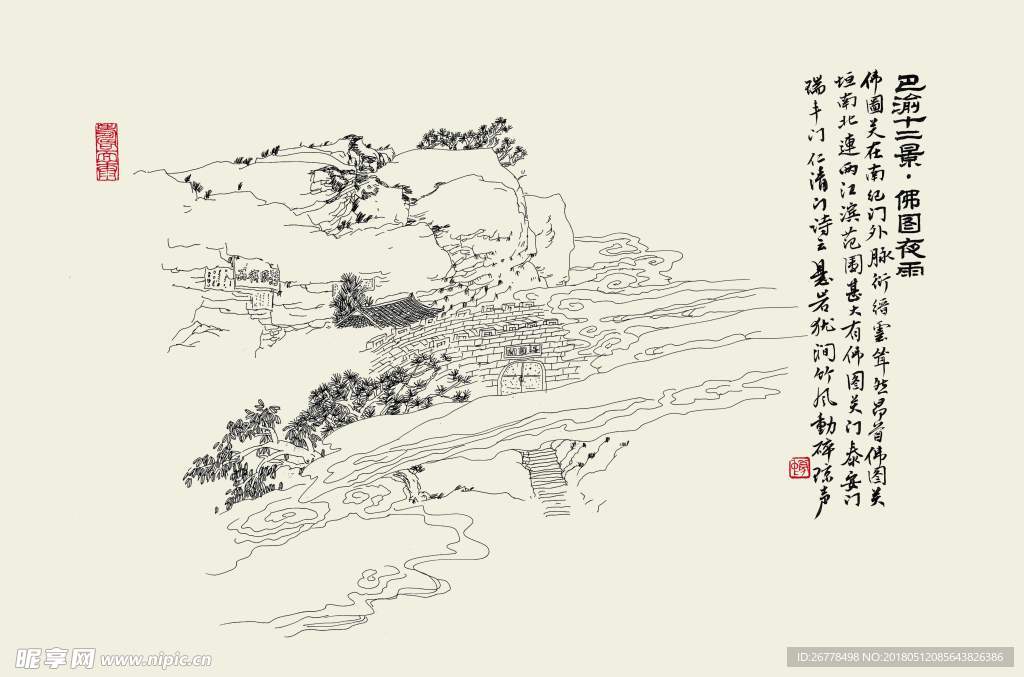 巴渝十二景·佛图夜雨
佛图关在南纪门外脉衍缙云耸然昂首佛图关
垣南北连两江滨范围甚大有佛图关门泰安门
瑞丰门仁清门诗云悬岩犹涧竹风动碎琼声
昵享网 www.nipic.cn
ID:26778498 NO:20180512085643826386